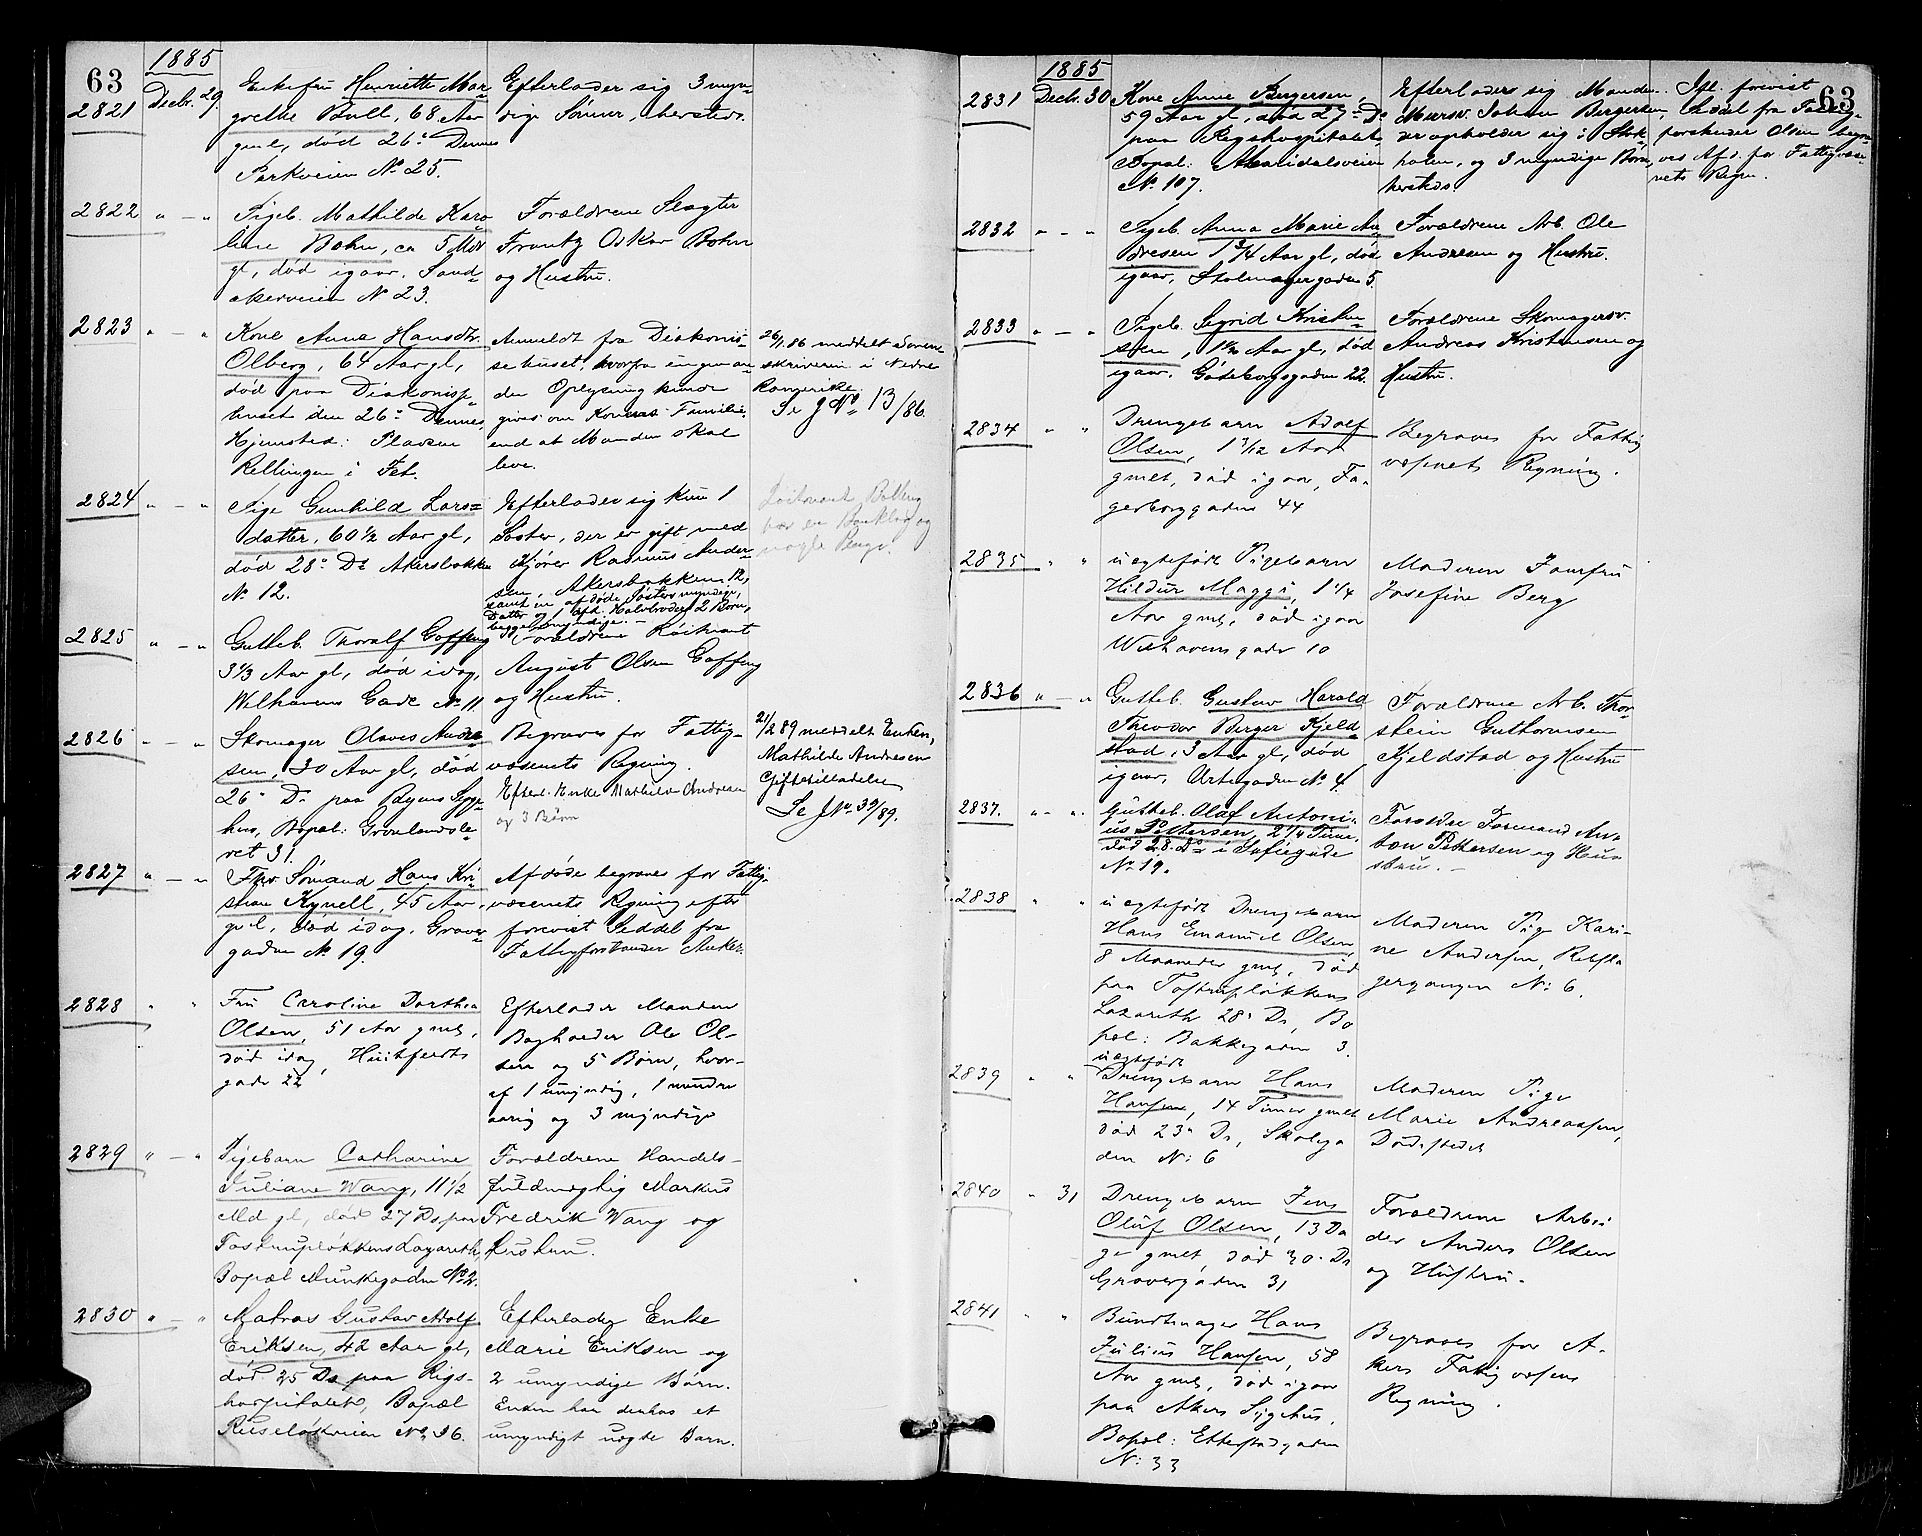 63
1885
2821
Decbr. 29.
Enkefru Henriette Mar-
grethe Bull, 68 Aar
gml, død 26. Dennes
Parkveien No 25.
Efterlader sig 3 myn-
dige Sønner, hersteds.
2822 " — "
Pigeb. Mathilde Karo
line Bohn, ca 5 Mdr
gl, død igaar, Sand-
akerveien No 23.
Forældrene Slagter
Frantz Oskar Bohn
og Hustru.
2823 " — "
Kone Anna Hansdtr.
Olberg, 64 Aar gl,
død paa Diakonisse-
huset den 26. Dennes,
Hjemsted: Pladsen
Rellingen i Fet.
Anmeldt fra Diakonis-
sehuset, hvorfra ingen an-
den Oplysning kunde
gives om Konens Familie,
end at Manden skal
leve.
26/1 86 meddelt Soren-
skriveren i Nedre
Romerike.
Se J No 13/86.
2824 " — "
Pige Gunhild Lars-
datter, 60 1/2 Aar gl,
død 28. Ds Akersbakken
No 12.
Efterlader sig kun 1
Søster, der er gift med
Kjører Rasmus Ander-
sen, Akersbakken 12,
samt en afdøde Søsters myndige
Datter og 1 afd. Halvbroders 2 Børn,
begge umyndige. —
og
2825 " — "
Gutteb. Thoralf Goffeng
3 1/3 Aar gl, død idag,
Welhavens Gade No 11
Forældrene
August Olsen Goffeng
og Hustru.
2826 " — "
Skomager Olaves Andre-
sen, 30 Aar gl, død
26. Ds paa Byens Syge-
hus, Bopæl: Grønlandsle-
ret 31.
Begraves for Fattig-
væsenets Regning.
Efterl. Enke Mathilde Andresen
og 3 Børn
21/2 89 meddelt Enken,
Mathilde Andresen
Giftetilladelse
Se J No 39/89.
2827 " — "
Fhv. Sømand Hans Kri-
stian Kynell, 45 Aar
gml, død idag, Graver-
gaden No 19.
Afdøde begraves for Fattig-
væsenets Regning efter
forevist Seddel fra
Fattigforstander Anker.
2828 " "
Fru Caroline Dorthea
Olsen, 51 Aar gmel,
død idag, Huitfeldts
gade 22
Efterlader Manden
Bogholder Ole Ol-
sen og 5 Børn, hvor-
af 1 umyndig, 1 mindre
aarig og 3 myndige
2829 " — "
Pigebarn Catharine
Juliane Wang, 11 1/2
Md gl, død 27 Ds paa
Tostrupløkkens Lazareth,
Bopæl Munkegaden No 2.
Forældrene Handels-
fuldmægtig Markus
Fredrik Wang og
Hustru.
2830 " — "
Matros Gustav Adolf
Eriksen, 42 Aar gl,
død 25 Ds paa Rigs-
hospitalet, Bopæl
Ruseløkveien No 36.
Efterlader Enke
Marie Eriksen og
2 umyndige Børn.
Enken har desuden et
umyndigt uægte Barn.
63
1885
2831 Decbr. 30
Kone Anne Bergersen,
59 Aar gl, død 27. Ds
paa Rigshospitalet,
Bopæl: Maridalsveien
No 107.
Efterlader sig Manden
Mursv. Johan Bergersen,
der opholder sig i Stok
holm, og 3 myndige Børn,
herstds.
Ifl. forevist
Seddel fra Fattig-
forstander Olsen begra-
ves Afd. for Fattigvæse-
nets Regn.
2832 " — "
Pigeb. Anna Marie An-
dresen 1 3/4 Aar gl, død
igaar, Stolmagergaden 5.
Forældrene Arb. Ole
Andresen og Hustru.
2833 " — "
Pigeb. Sigrid Kristen-
sen, Aar gl, død
igaar, Gøteborggaden 22.
Forældrene Skomagersv.
Andreas Kristensen og
Hustru.
2834 " "
Drengebarn Adolf
Olsen, 1 7/12 Aar
gmel, død igaar, Fa-
gerborggaden 44
Begraves for Fattig
væsnets Regning.
2835 " "
uægtefødt Pigebarn
Hildur Maggi, 1 1/4
Aar gmel, død igaar
Welhavensgade 10
Moderen Jomfru
Josefine Berg
2836 " — "
Gutteb. Gustav Harald
Theodor Berger Kjeld-
stad, 3 Aar gl, død
igaar, Urtegaden No 4.
Forældrene Arb. Thor-
stein Guthormsen
Kjeldstad og Hustru
2837. " — "
Gutteb. Olaf Antoni-
us Pettersen, 2 1/4 Time,
død 28. Ds i Sofiegade
No 19.
Forældre Formand An-
ton Pettersen og Hu-
stru. —
2838 " "
uægtefødt Drengebarn
Hans Emanuel Olsen,
8 Maaneder gmel, død
paa Tostrupløkkens
Lazareth 28. Ds, Bo
pæl: Bakkegaden 3.
Moderen Pige Kari-
ne Andersen, Rebsla
gergangen No: 6.
2839 " "
uægtefødt
Drengebarn Hans
Hansen, 14 Timer gmel
død 23. Ds, Skolega
den No: 6
Moderen Pige
Marie Andreassen,
Dødsstedet
2840 " 31
Drengebarn Jens
Oluf Olsen, 13 Da
ge gmel, død 30. Ds
Gravergaden 31
Forældrene Arbei
der Anders Olsen
og Hustru.
2841 " "
Bundtmager Hans
Julius Hansen, 58
Aar gmel, død igaar
paa Akers Sygehus,
Bopæl: Ettestadgaden
No: 33
Begraves for A-
kers Fattigvæsens
Regning.